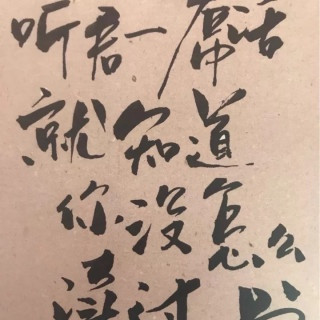 听君一席话
就知道
你没怎么
读过书